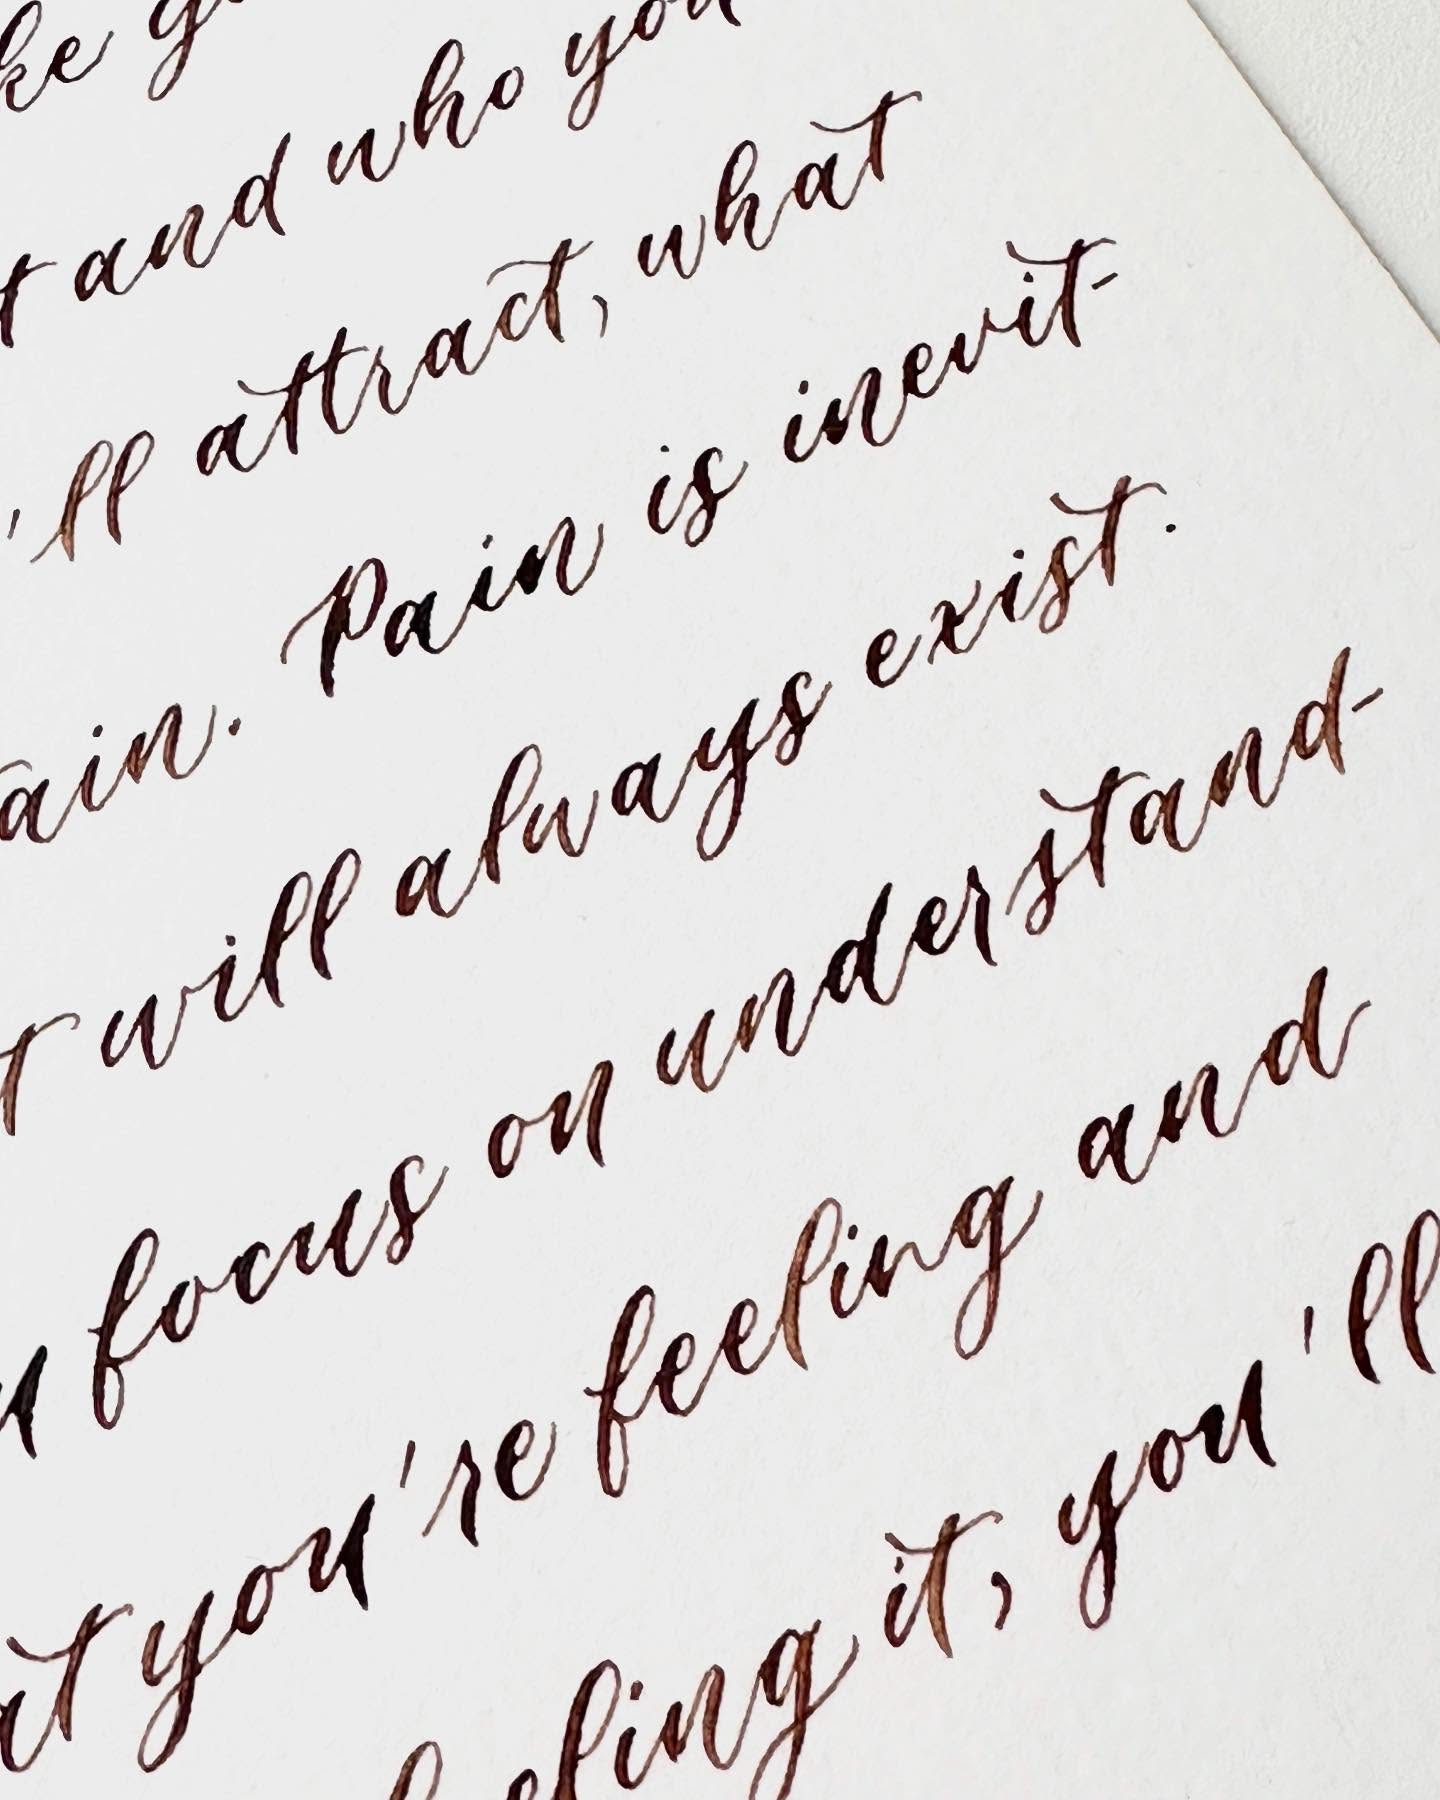 and who you
'll attract, what
ain. Pain is inevit-
will always exist.
focus on understand-
you're feeling and
eling it, you'll